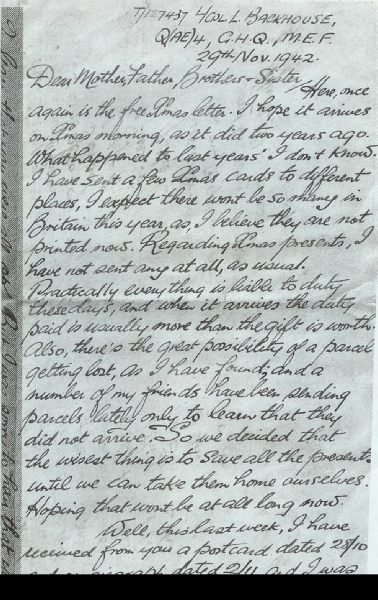 T/127437 4/Col L. BACKHOUSE,
Q(AE)4, G.H.Q., M.E.F.
29th Nov. 1942.
Dear Mother, Father, Brothers + Sister,
Here, once
again is the free Xmas letter. I hope it arrives
on Xmas morning, as it did two years ago.
What happened to last years I don't know.
I have sent a few Xmas cards to different
places, I expect there wont be so many in
Britain this year, as, I believe they are not
printed now. Regarding Xmas presents, I
have not sent any at all, as usual.
Practically everything is liable to duty
these days, and when it arrives the duty
paid is usually more than the gift is worth.
Also, there's the great possibility of a parcel
getting lost, as I have found; and a
number of my friends have been sending
parcels lately only to learn that they
did not arrive. So we decided that
the wisest thing is to save all the presents
until we can take them home ourselves.
Hoping that wont be at all long now.
Well, this last week, I have
received from you a postcard dated 28/10
dated 2/11 and I was